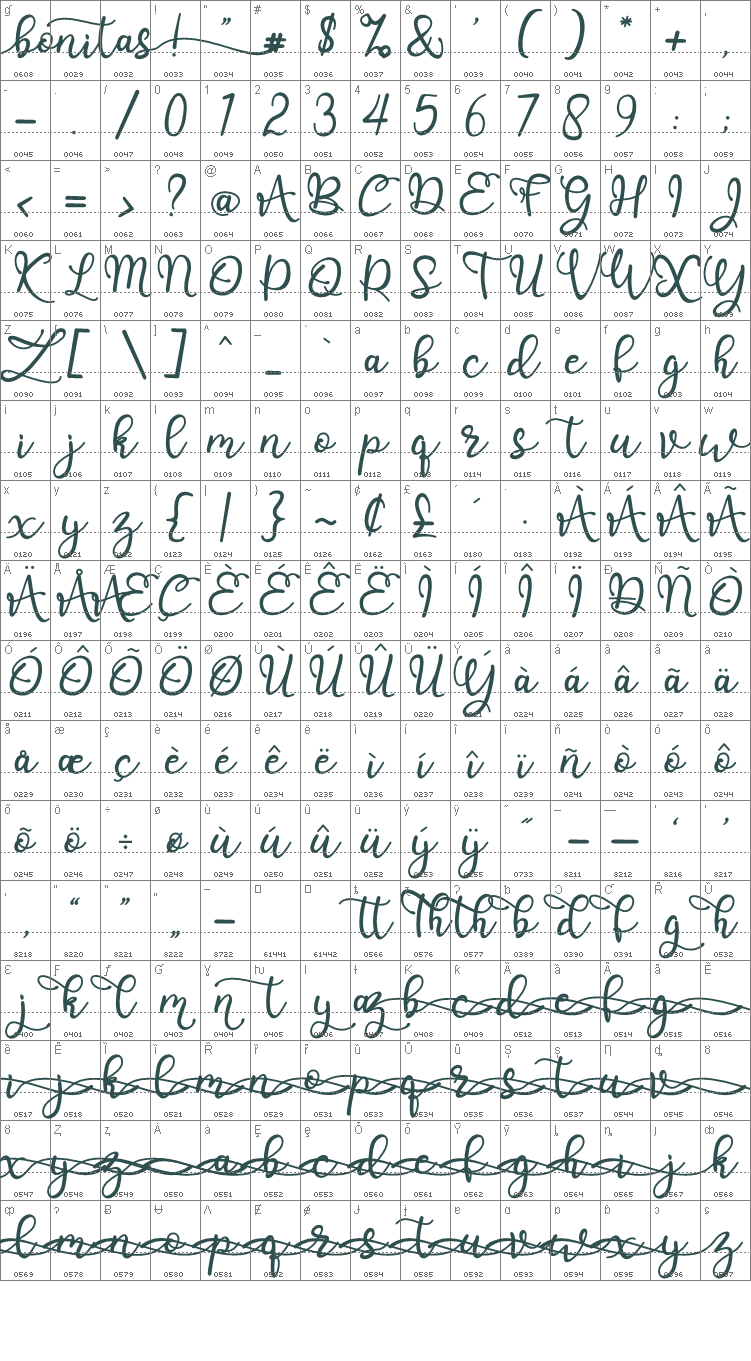 bonitas ! " # $ % & ' ( ) * + ,
0608 0029 0032 0033 0034 0035 0036 0037 0038 0039 0040 0041 0042 0043 0044
- . / 0 1 2 3 4 5 6 7 8 9 : ;
0045 0046 0047 0048 0049 0050 0051 0052 0053 0054 0055 0056 0057 0058 0059
< = > ? @ A B C D E F G H I J
0060 0061 0062 0063 0064 0065 0066 0067 0068 0069 0070 0071 0072 0073 0074
K L M N O P Q R S T U V W X Y
0075 0076 0077 0078 0079 0080 0081 0082 0083 0084 0085 0086 0087 0088 0089
Z [ \ ] ^ _ ` a b c d e f g h
0090 0091 0092 0093 0094 0095 0096 0097 0098 0099 0100 0101 0102 0103 0104
i j k l m n o p q r s t u v w
0105 0106 0107 0108 0109 0110 0111 0112 0113 0114 0115 0116 0117 0118 0119
x y z { | } ~ ¢ £ ´ · À Á Â Ã
0120 0121 0122 0123 0124 0125 0126 0162 0163 0180 0183 0192 0193 0194 0195
Ä Å Æ Ç È É Ê Ë Ì Í Î Ï Ð Ñ Ò
0196 0197 0198 0199 0200 0201 0202 0203 0204 0205 0206 0207 0208 0209 0210
Ó Ô Õ Ö Ø Ù Ú Û Ü Ý à á â ã ä
0211 0212 0213 0214 0216 0217 0218 0219 0220 0221 0224 0225 0226 0227 0228
å æ ç è é ê ë ì í î ï ñ ò ó ô
0229 0230 0231 0232 0233 0234 0235 0236 0237 0238 0239 0241 0242 0243 0244
õ ö ÷ ø ù ú û ü ý ÿ ˝ – — ‘ ’
0245 0246 0247 0248 0249 0250 0251 0252 0253 0255 0733 8211 8212 8216 8217
‚ “ ” „ − tt Th th b d f g h
8218 8220 8221 8222 8722 61441 61442 0566 0576 0577 0389 0390 0391 0530 0532
j k l m n t y z b c d e f g
0400 0401 0402 0403 0404 0405 0406 0407 0408 0409 0512 0513 0514 0515 0516
i j k l m n o p q r s t u v
0517 0518 0520 0521 0528 0529 0531 0533 0534 0535 0536 0537 0544 0545 0546
x y z a b c d e f g h i j k
0547 0548 0549 0550 0551 0552 0553 0560 0561 0562 0563 0564 0565 0567 0568
l m n o p q r s t u v w x y z
0569 0578 0579 0580 0581 0582 0583 0584 0585 0592 0593 0594 0595 0596 0597